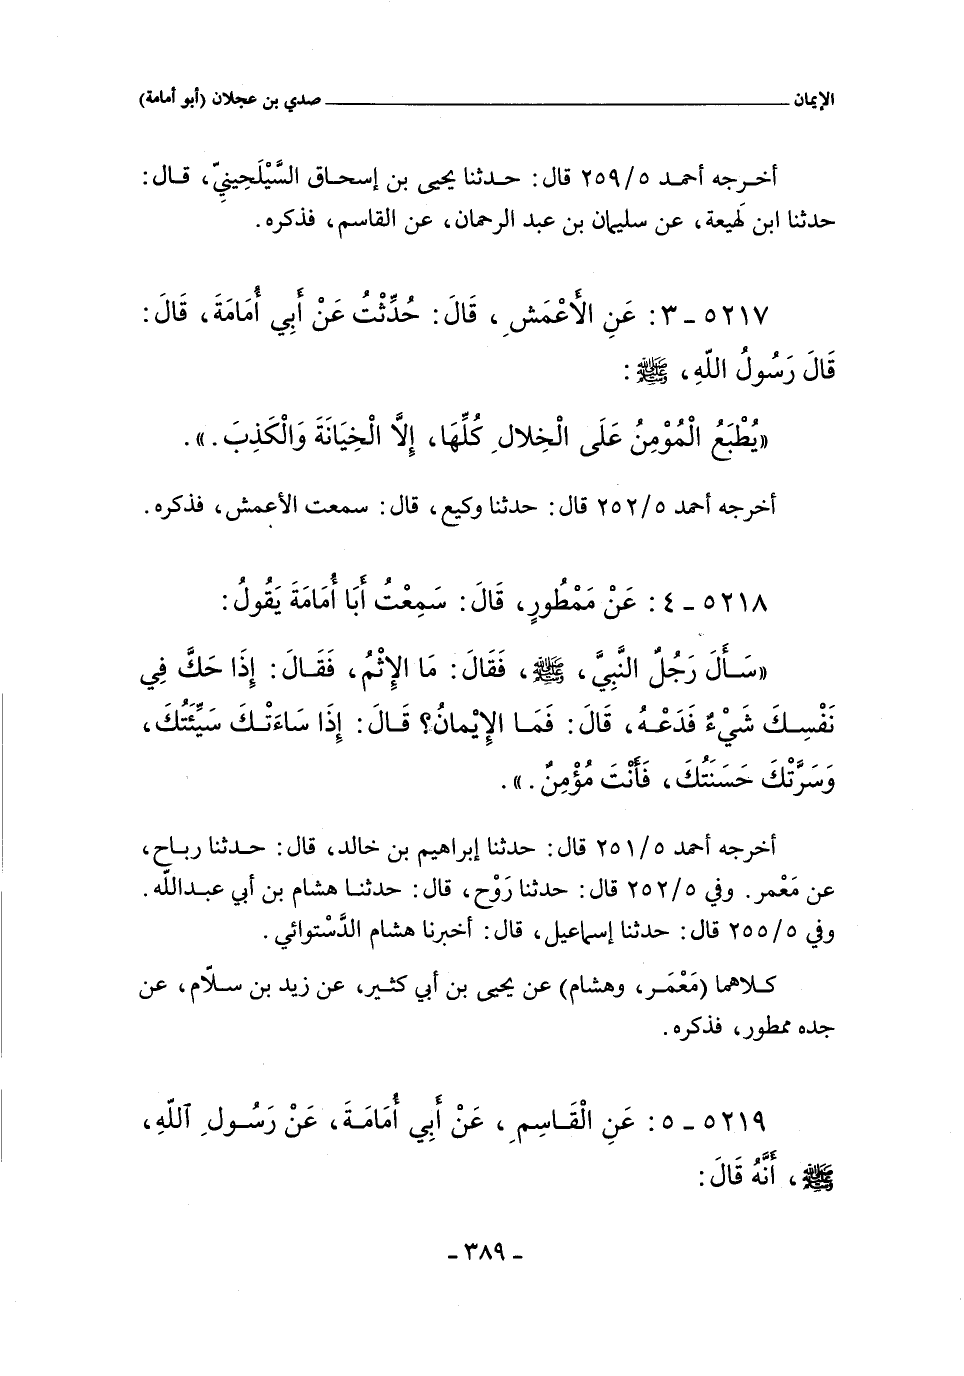 الإيمان ــــــــ صدي بن عجلان (أبو أمامة)
أخرجه أحمد ٥/ ٢٥٩ قال: حدثنا يحيى بن إسحاق السَّيْلَحِينِيّ، قال:
حدثنا ابن لَهيعة، عن سليمان بن عبد الرحمان، عن القاسم، فذكره.
٥٢١٧ - ٣: عَنِ الْأَعْمَشِ، قَالَ: حُدِّثْتُ عَنْ أَبِي أُمَامَةَ، قَالَ:
قَالَ رَسُولُ اللّهِ، ﷺ:
«يُطْبَعُ الْمُؤْمِنُ عَلَى الْخِلالِ كُلِّهَا، إِلَّا الْخِيَانَةَ وَالْكَذِبَ.».
أخرجه أحمد ٥/ ٢٥٢ قال: حدثنا وكيع، قال: سمعت الأعمش، فذكره.
٥٢١٨ - ٤: عَنْ مَمْطُورٍ، قَالَ: سَمِعْتُ أَبَا أُمَامَةَ يَقُولُ:
«سَأَلَ رَجُلٌ النَّبِيَّ، ﷺ، فَقَالَ: مَا الإِثْمُ، فَقَالَ: إِذَا حَكَّ فِي
نَفْسِكَ شَيْءٌ فَدَعْهُ، قَالَ: فَمَا الإِيْمانُ؟ قَالَ: إِذَا سَاءَتْكَ سَيِّئَتُكَ،
وَسَرَّتْكَ حَسَنَتُكَ، فَأَنْتَ مُؤْمِنٌ.».
أخرجه أحمد ٥/ ٢٥١ قال: حدثنا إبراهيم بن خالد، قال: حدثنا رباح،
عن مَعْمر. وفي ٥/ ٢٥٢ قال: حدثنا رَوْح، قال: حدثنا هشام بن أبي عبدالله.
وفي ٥/ ٢٥٥ قال: حدثنا إسماعيل، قال: أخبرنا هشام الدَّسْتوائي.
كلاهما (مَعْمَر، وهشام) عن يحيى بن أبي كثير، عن زيد بن سلاّم، عن
جده ممطور، فذكره.
٥٢١٩ - ٥: عَنِ الْقَاسِمِ، عَنْ أَبِي أُمَامَةَ، عَنْ رَسُولِ ٱللّهِ،
ﷺ، أَنَّهُ قَالَ:
- ٣٨٩ -